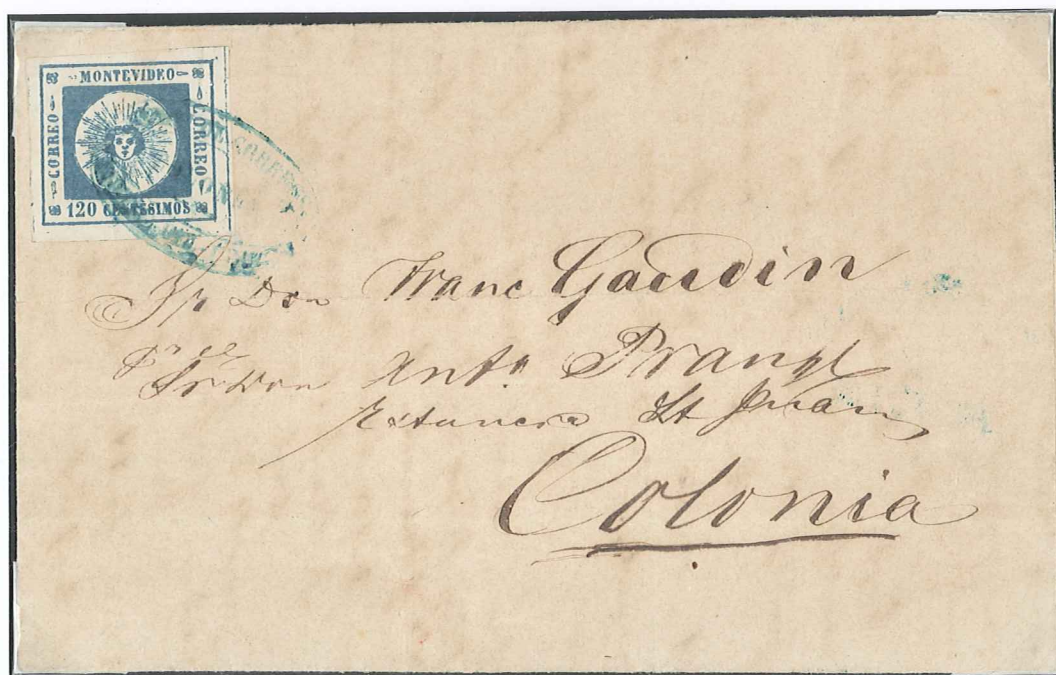 MONTEVIDEO
CORREO
CORREO
120 CENTESIMOS
Sr Don Franc Gaudin
Sr Don Anto Prangl
Estancia St Juan
Colonia